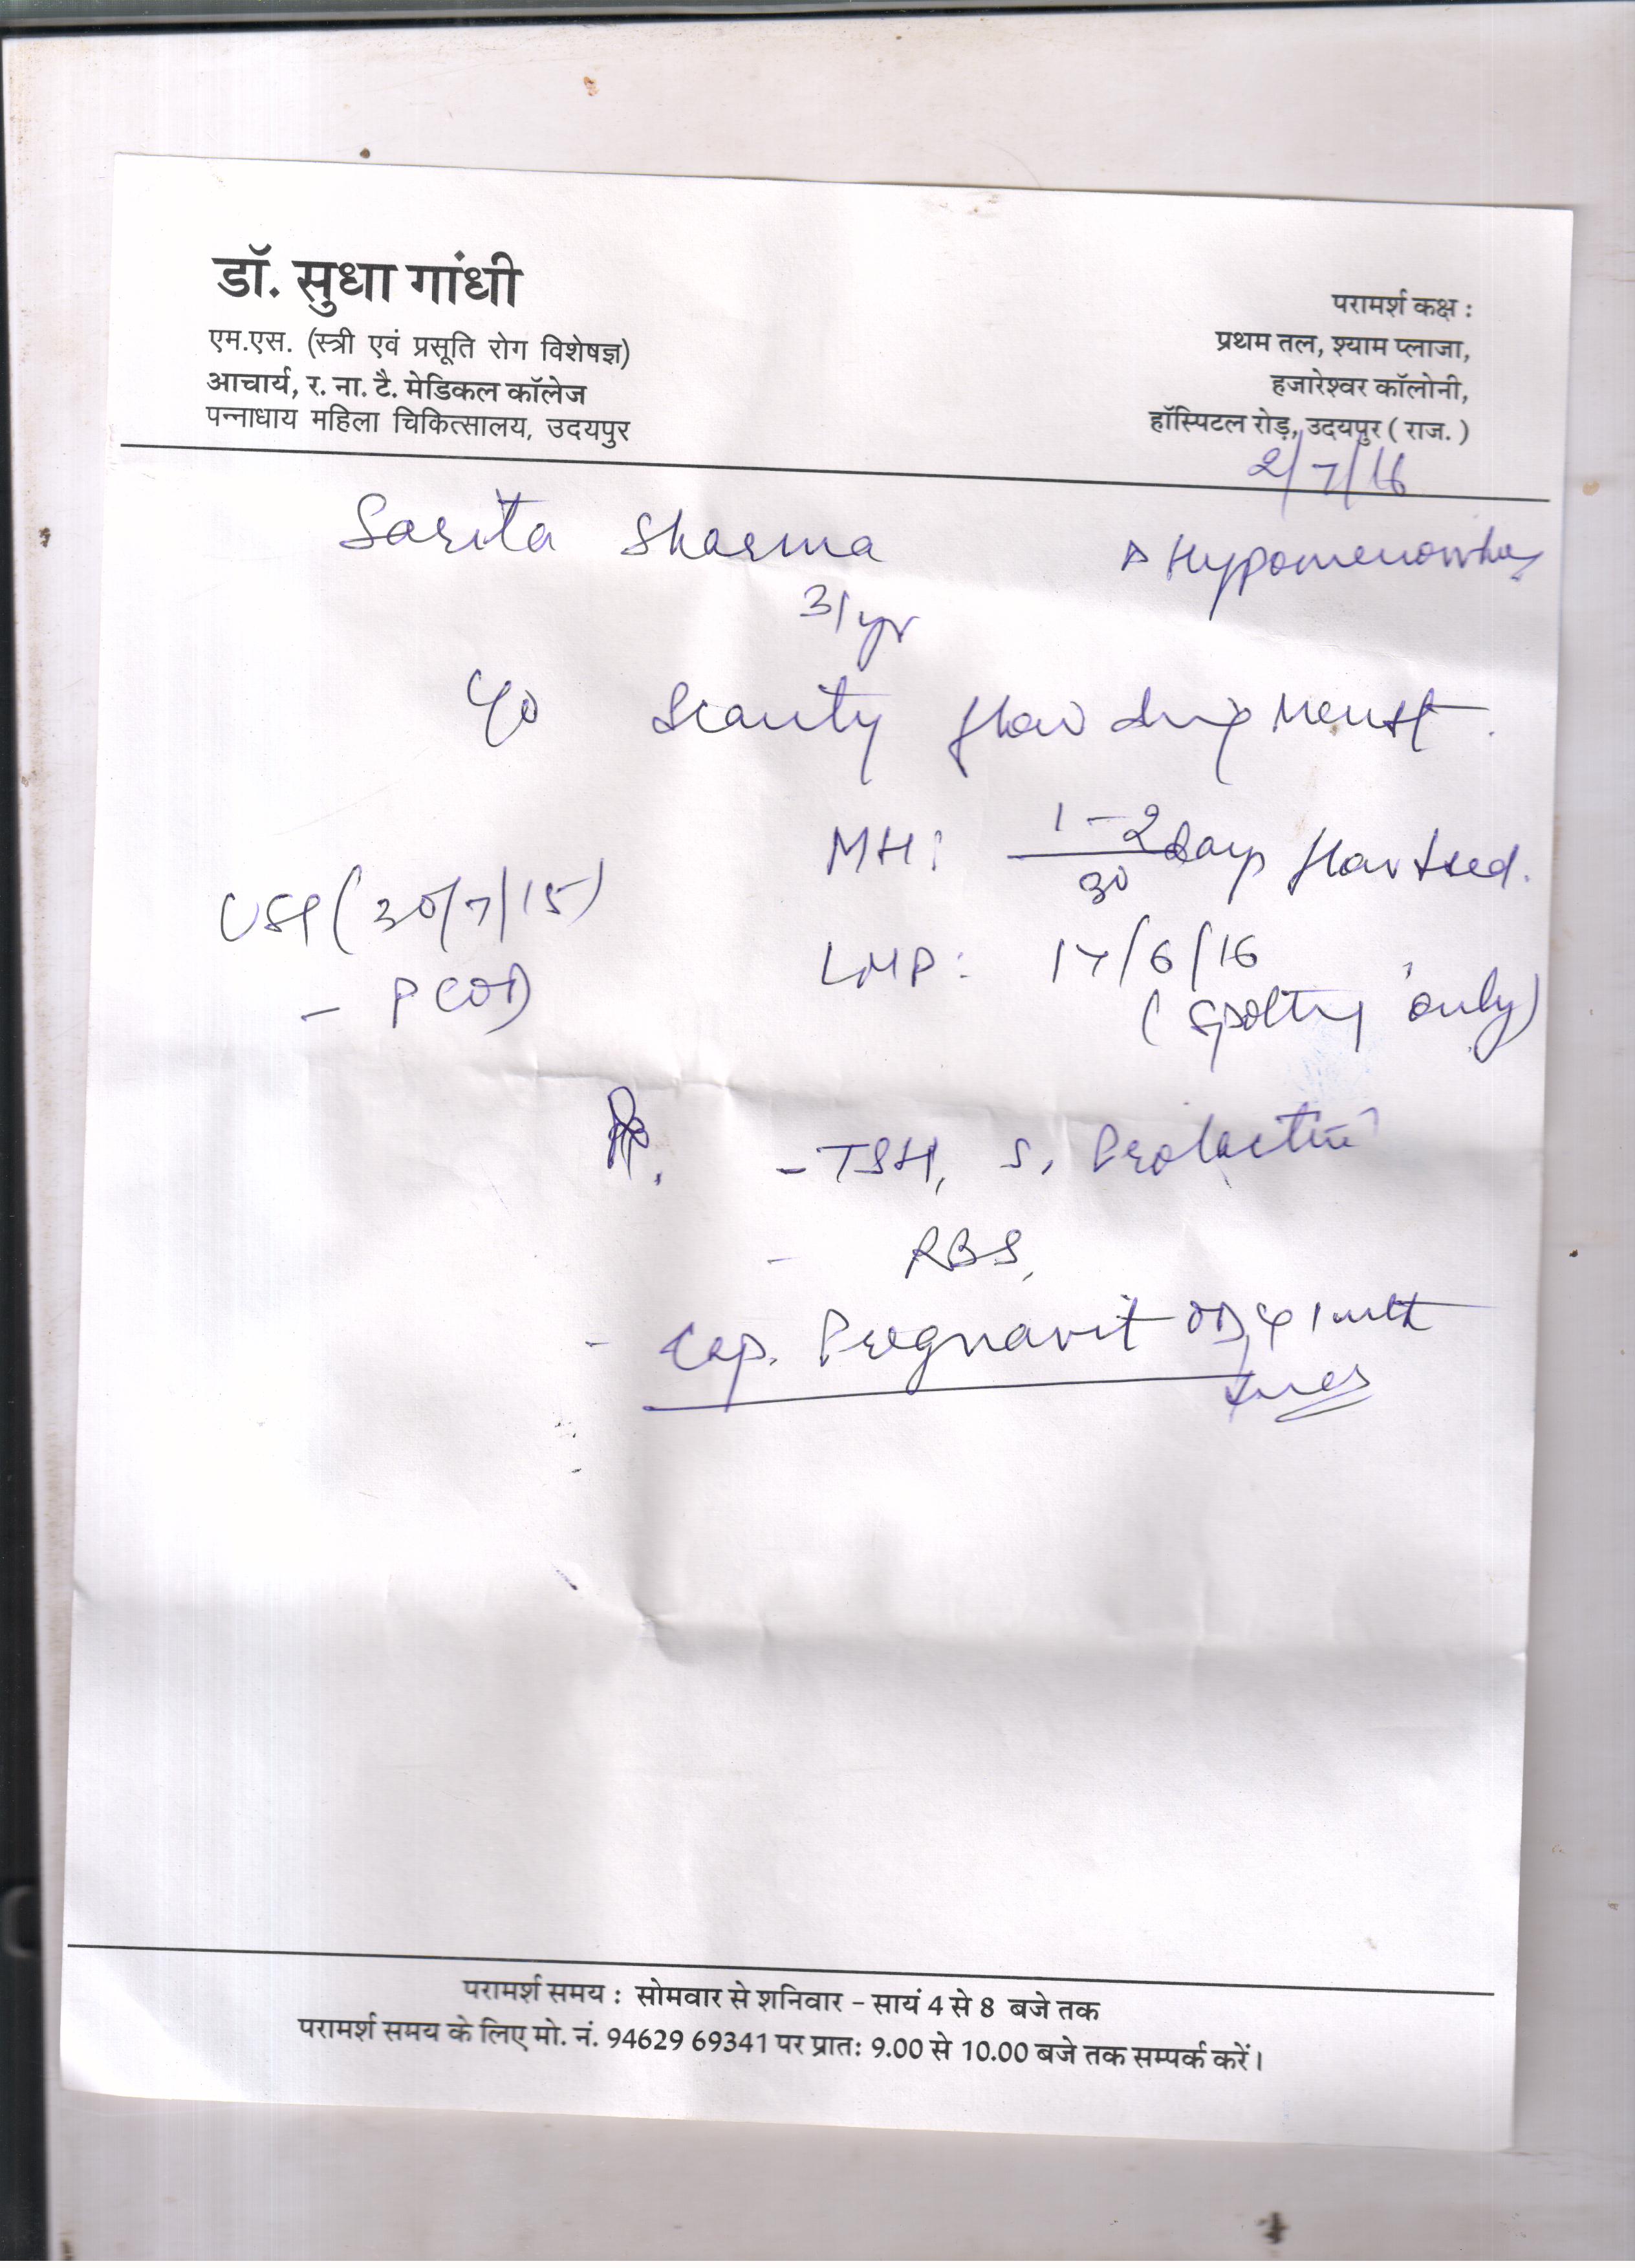 डॉ. सुधा गांधी
एम.एस. (स्त्री एवं प्रसूति रोग विशेषज्ञ)
आचार्य, र. ना. टै. मेडिकल कॉलेज
पन्नाधाय महिला चिकित्सालय, उदयपुर
परामर्श कक्ष :
प्रथम तल, श्याम प्लाजा,
हजारेश्वर कॉलोनी,
हॉस्पिटल रोड़, उदयपुर ( राज. )
2/7/16
Sarita Sharma
31 yr
c/o Scanty flow during Menst.
MH: 1-2 days
30
USG (30/7/15)
- PCOD
LMP: 17/6/16
( spotting only)
- TSH, S. Prolactin
- RBS,
- Cap. Pregnavit OD x 1 mth
परामर्श समय : सोमवार से शनिवार - सायं 4 से 8 बजे तक
परामर्श समय के लिए मो. नं. 94629 69341 पर प्रातः 9.00 से 10.00 बजे तक सम्पर्क करें।